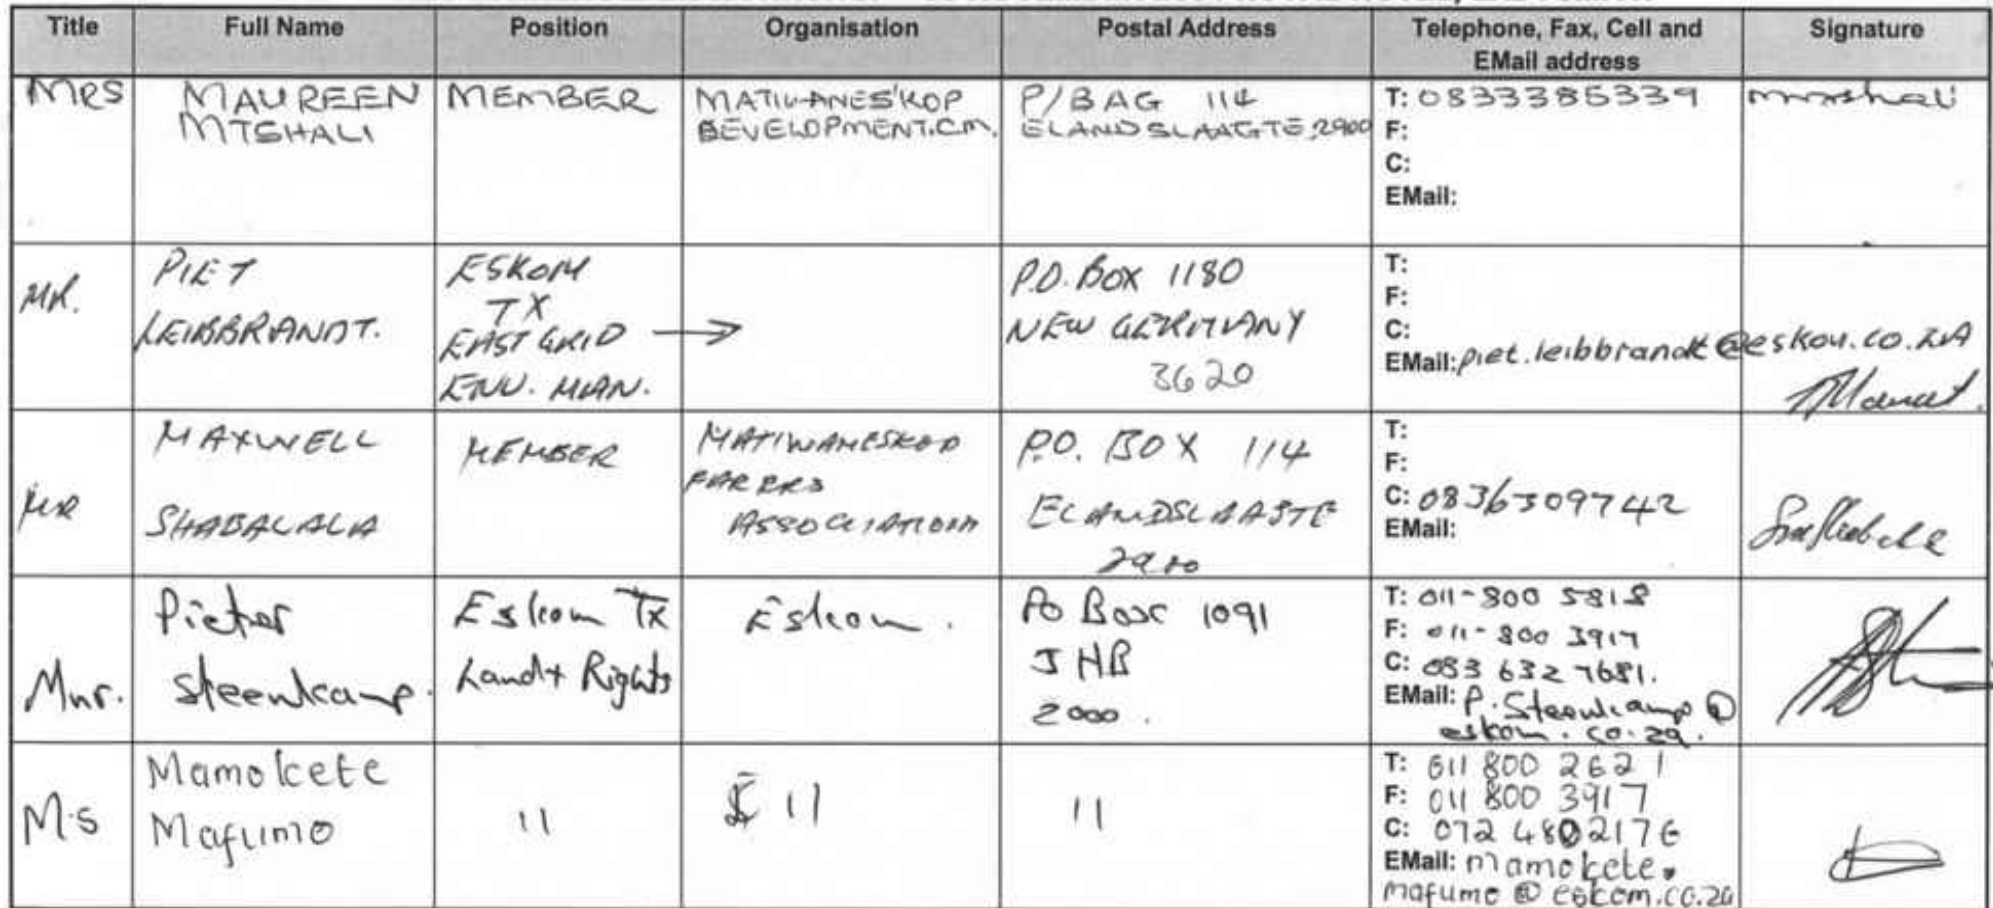 Title Full Name Position Organisation Postal Address Telephone, Fax, Cell and EMail address Signature
MRS MAUREEN MTSHALI MEMBER MATIWANES'KOP DEVELOPMENT.CM. P/BAG 114 ELANDSLAAGTE 2900 T: 0833385339
F:
C:
EMail:
MR. PIET LEIBBRANDT. ESKOM TX EAST GRID ENV. MAN. → P.O. BOX 1180 NEW GERMANY 3620 T:
F:
C:
EMail: piet.leibbrandt@eskom.co.ZA
MR MAXWELL SHABALALA MEMBER MATIWANESKOP ASSOCIATION P.O. BOX 114 ELANDSLAAGTE 2900 T:
F:
C: 0836309742
EMail:
Mnr. Pieter Steenkamp. Eskom Tx Land & Rights Eskom. Po Box 1091 JHB 2000. T: 011-800 5818
F: 011-800 3917
C: 083 632 7681.
EMail: P.Steenkamp@
eskom.co.za.
Ms Mamokete Mafumo 11 11 11 T: 011 800 2621
F: 011 800 3917
C: 072 4802176
EMail: mamokete.
mafumo@eskom.co.za